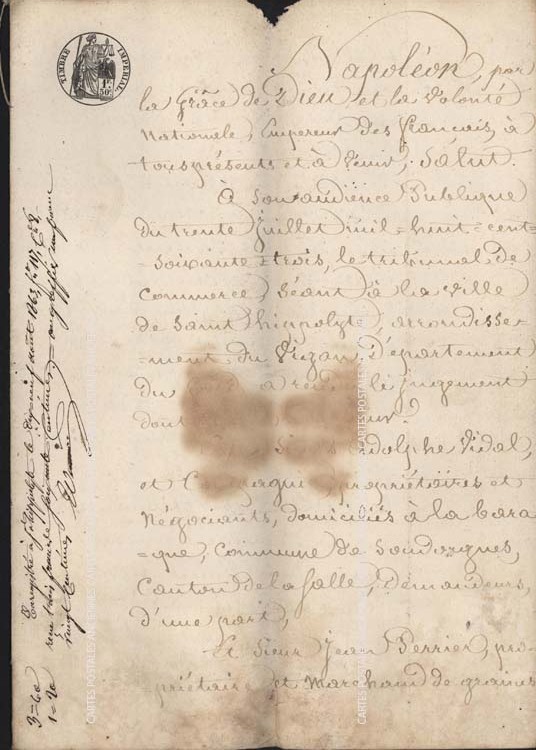 TIMBRE IMPERIAL
1F
50c
Napoléon, par
la Grâce de Dieu et la Volonté
Nationale, Empereur des français, à
tous présents et à venir, Salut.
À Son audience Publique
du trente Juillet mil=huit=cent=
=soixante=trois, le tribunal de
Commerce, Séant à la ville
de Saint hippolyte, arrondisse=
=ment du Vigan, Département
du a rendu le jugement
dont
adolphe Vidal,
et Compagnie propriétaires et
Négociants, domiciliés à la bara
=que, Commune de Soudorgues,
Canton de laSalle, Demandeurs,
d'une part,
Et Sieur Jean Perrier, pro=
=priétaire et Marchand de grains
Enregistré à St hippolyte le août 1863, fo 117
reçu trois francs soixante Centimes,
vingt Centimes
3=60
1=20
CARTES POSTALES
CARTES POSTALES